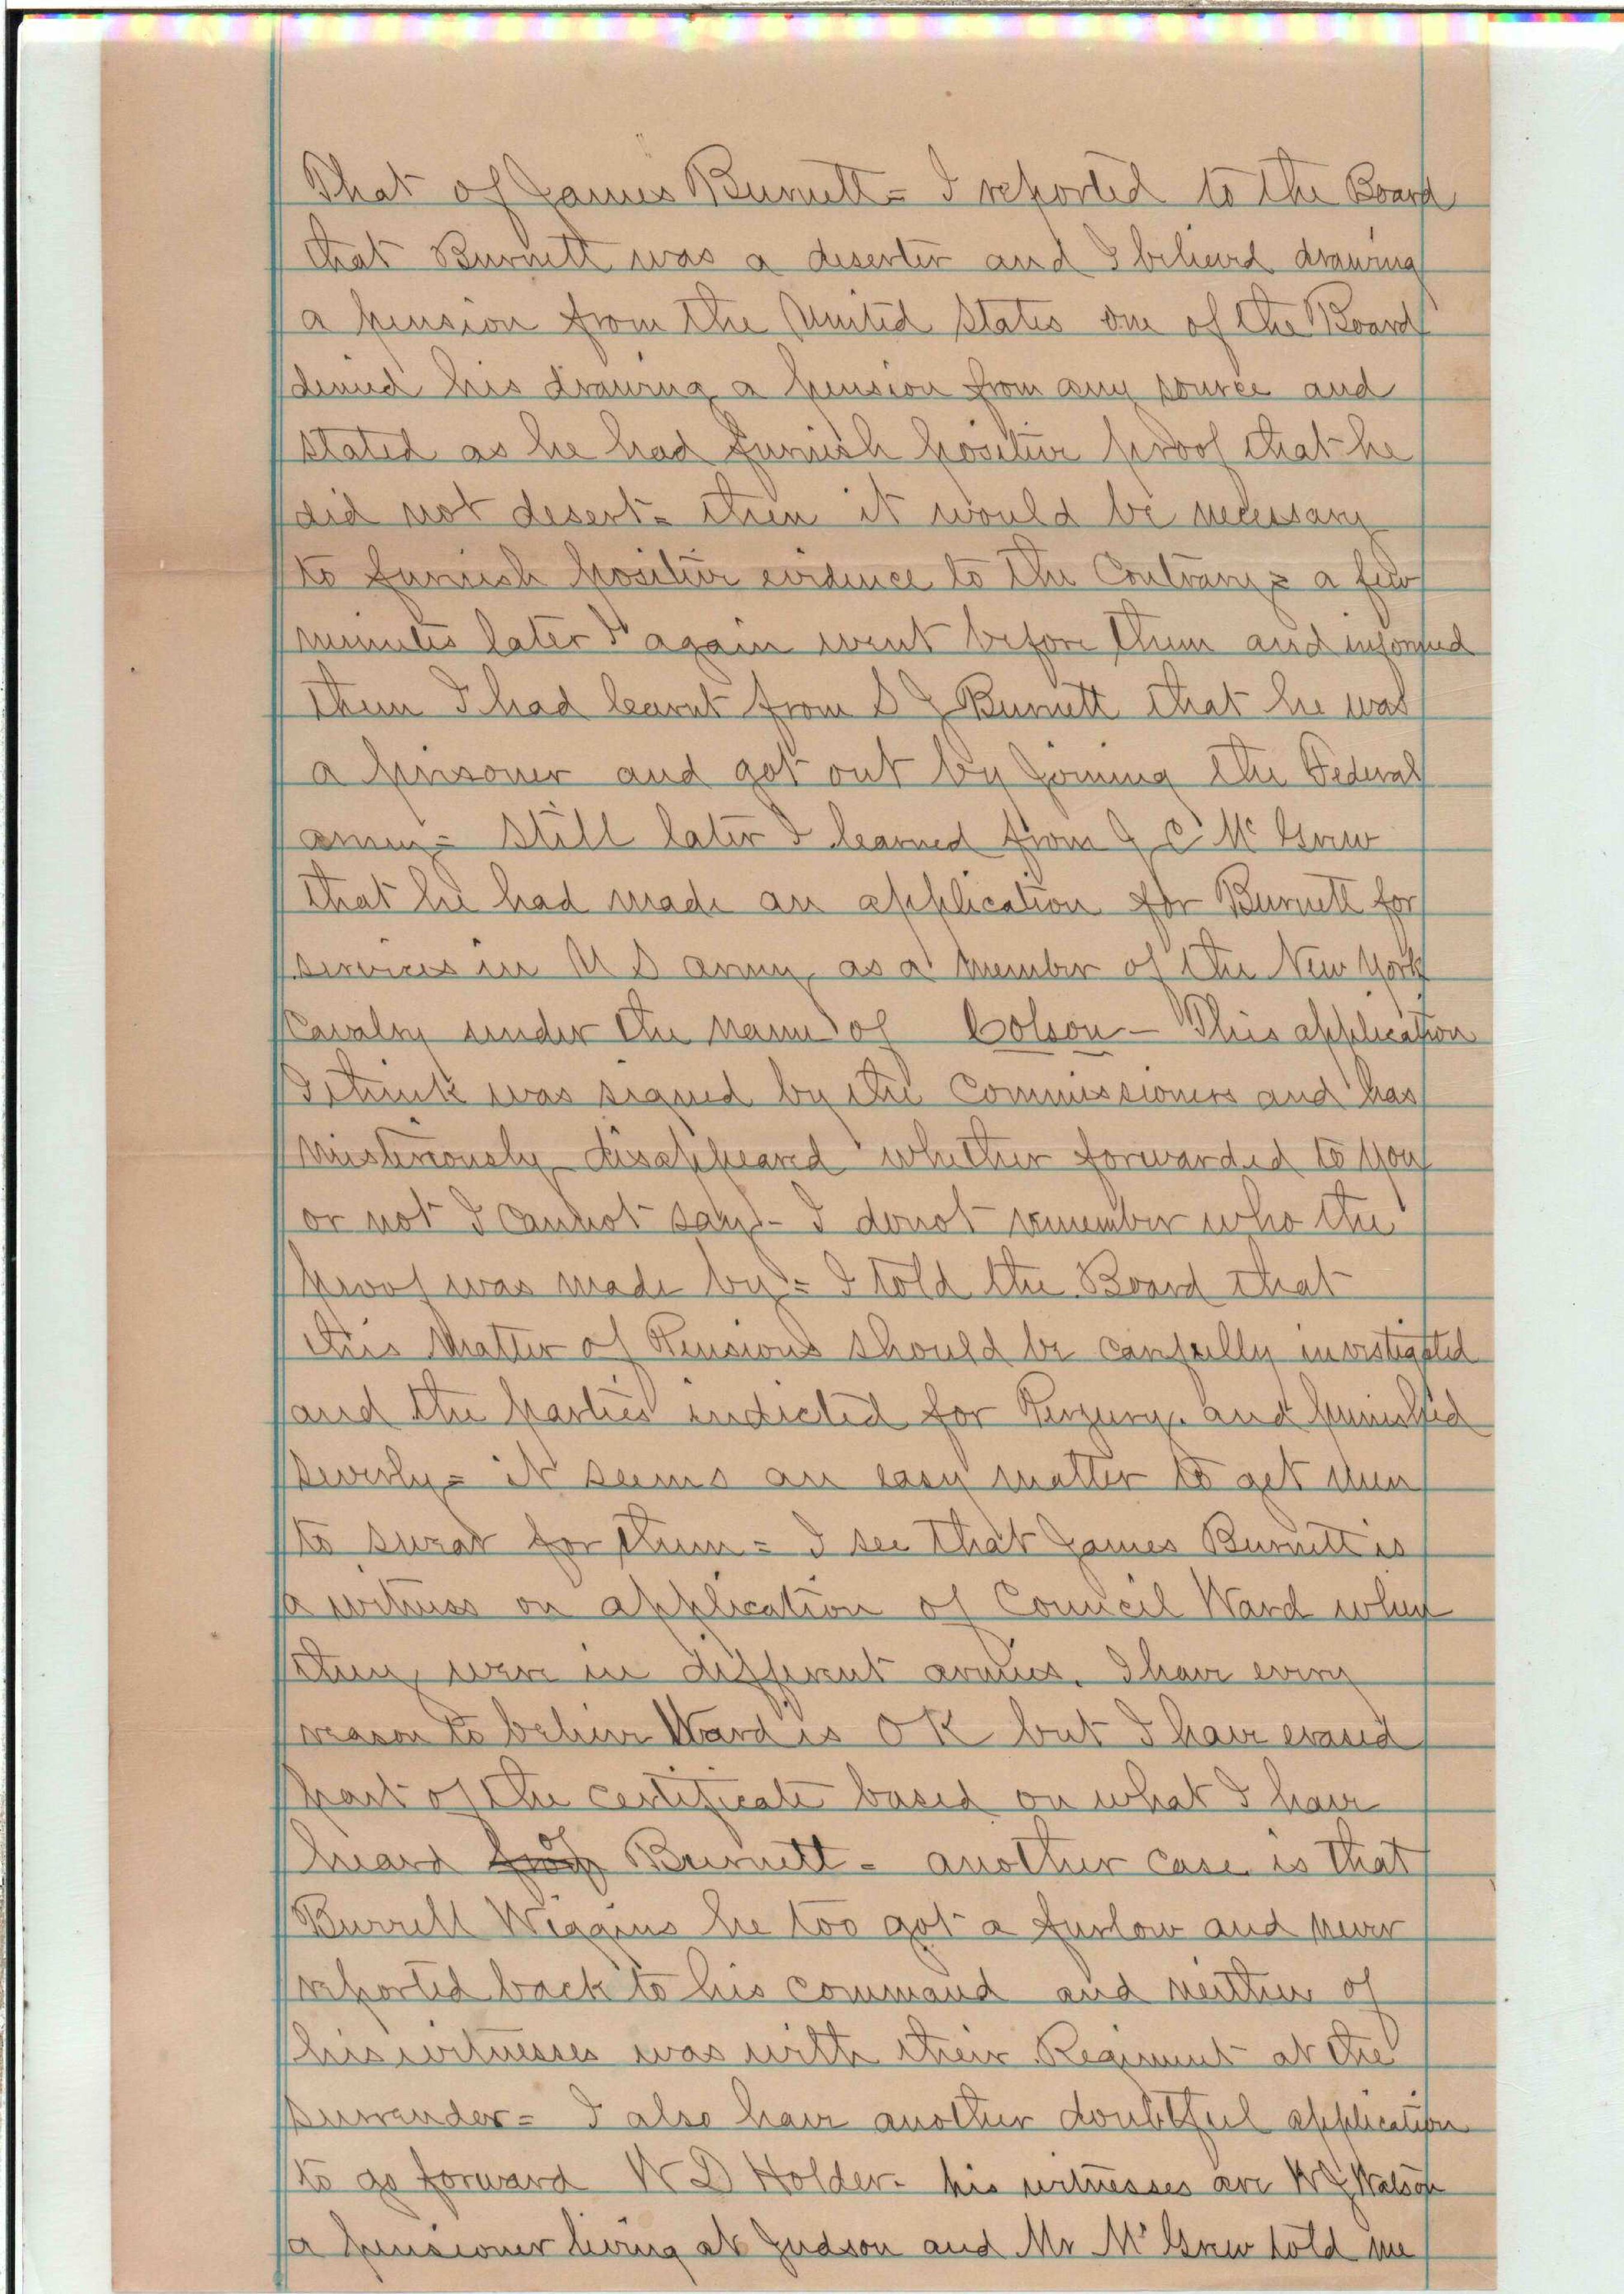 That of James Burnett = I reported to the Board
that Burnett was a deserter and I beleivd drawing
a pension from the United States one of the Board
denied his drawing a pension from any source and
stated as he had furnish positive proof that he
did not desert = then it would be necessary
to furnish positive evidence to the Contrary = a few
minutes later I again went before them and informed
them I had learnt from S J Burnett that he was
a prisoner and got out by joining the Federal
army = Still later I learned from J C McGrew
that he had made an application for Burnett for
services in U S army as a member of the New York
Cavalry under the name of Colson — This application
I think was signed by the Commissioners and has
misteriously disappeared whether forwarded to you
or not I cannot say - I donot remember who the
proof was made by = I told the Board that
this Matter of Pensions should be carefully investigated
and the parties indicted for Perzury. and punished
severly = it seems an easy matter to get men
to swear for them = I see that James Burnett is
a witness on application of Council Ward when
they were in different armies. I have every
reason to believe Ward is OK but I have erased
part of the certificate based on what I have
heard of Burnett - another case is that
Burrell Wiggins he too got a furlow and never
reported back to his command and neither of
his witnesses was with their Regiment at the
surrender = I also have another doubtful application
to go forward W D Holder - his witnesses are W J Watson
a pensioner living at Judson and Mr McGrew told me